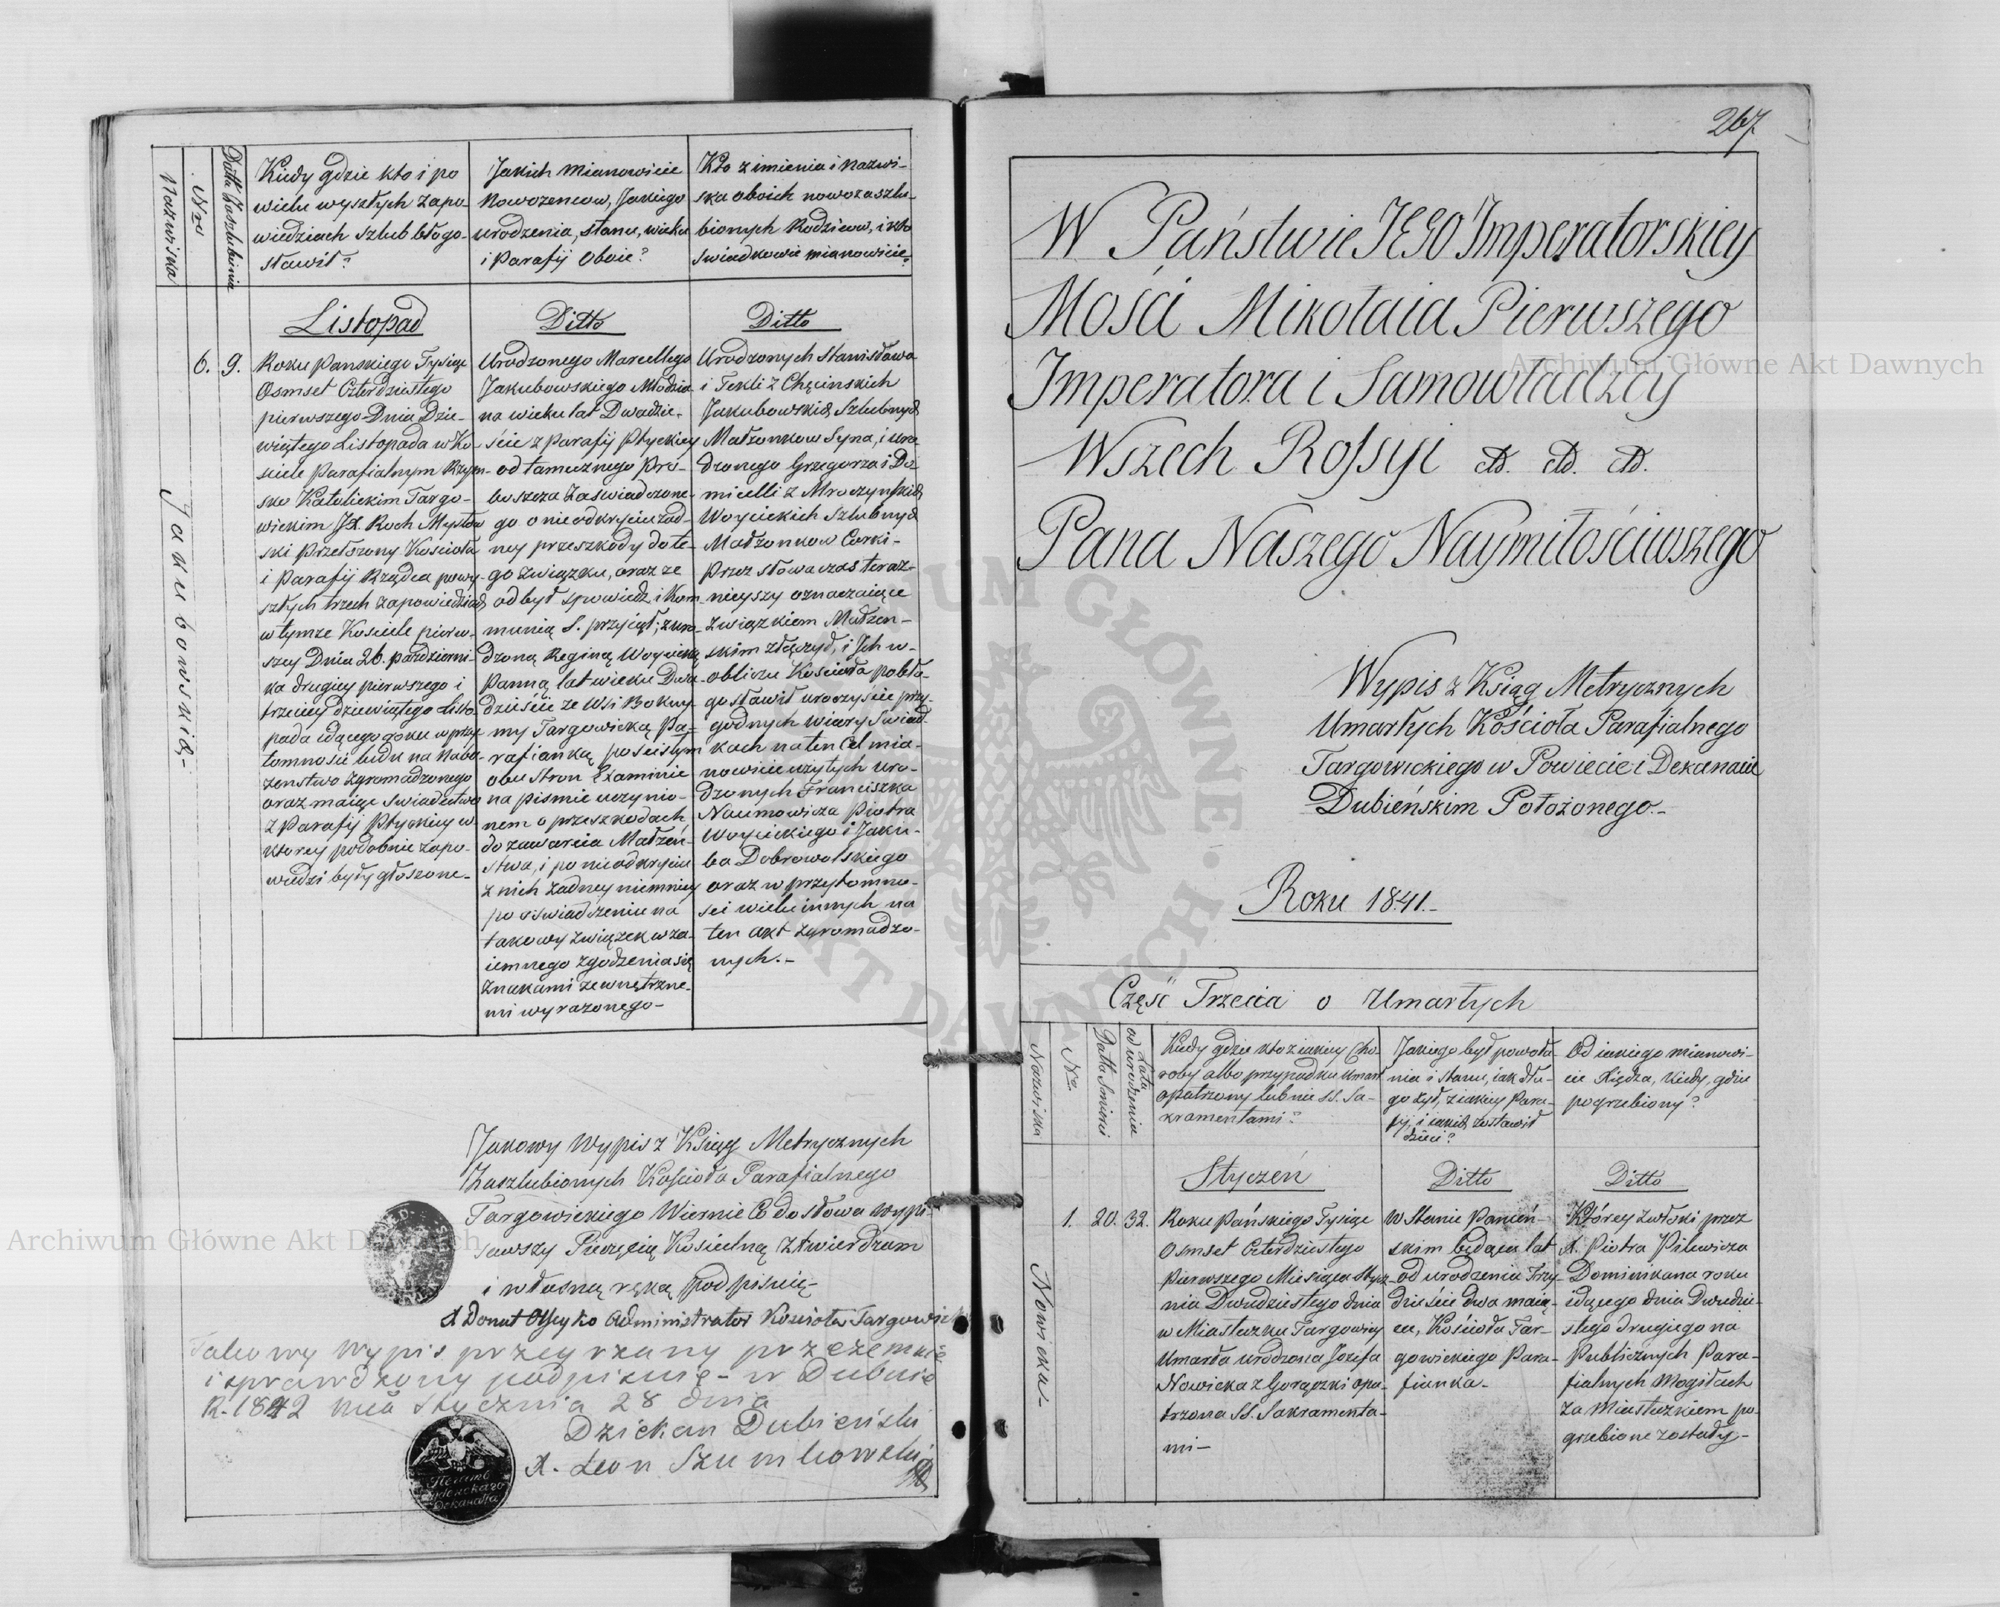 Nazwiska
Nro
Datta Zaszlubienia
Kiedy gdzie kto i po
wielu wyszłych zapo-
wiedziach szlub błogo-
sławił?
Jakich mianowicie
Nowozencow, Jakiego
urodzenia, stanu, wieku
i Parafij Oboie?
Kto z imienia i nazwi-
ska oboich nowozaszlu-
bionych Rodziców, i kto
Swiadkowie mianowicie?
Listopad
Ditto
Ditto
Jakubowskich
6.
9.
Roku Panskiego Tysiąc
Osmset Czterdziestego
pierwszego Dnia Dzie-
wiątego Listopada w Ko-
sciele Parafialnym Rzym-
sko Katolickim Targo-
wickim JX. Roch Mysłow
ski Przełozony Kościoła
i Parafij Rządca powy-
szłych trzech zapowiedziach
w tymze Kosciele pierw-
szey Dnia 26. pazdzierni-
ka drugiey pierwszego i
trzeciey dziewiątego Listo
pada idącego roku w przy
tomnosci ludu na Nabo-
zenstwo zgromadzonego
oraz maiąc swiadectwo
z Parafij Ptyckiey w
ktorey podobnie zapo-
wiedzi były głoszone-
Urodzonego Marcellego
Jakubowskiego Młodzia
na wieku lat Dwadzie-
ście z Parafij Ptyckiey
od tamecznego Pro-
boszcza Zaświadczone-
go o nieodkryciu zad-
ney przeszkody do te-
go związku, oraz ze
odbył spowiedz i kom-
munią S. przyiął; z uro-
dzoną Reginą Woycicką
Panną lat wieku Dwa-
dzieście ze Wsi Boku-
my Targowicką Pa-
rafianką po scisłym
obu stron Examinie
na pismie uczynio-
nem o przeszkodach
do zawarcia Małzeń-
stwa, i po nieodkryciu
z nich żadney niemniey
po oświadczeniu na
takowy związek wza-
iemnego zgodzenia się
znakami zewnętrzne-
mi wyrazonego-
Urodzonych Stanisława
i Tekli z Chęcinskich
Jakubowskich Szlubnych
Małzonkow Syna, i uro
dzonego Grzegorza i Do
micelli z Mroczynskich
Woycickich Szlubnych
Małzonkow Corki-
Przez słowa czas teraz-
nieyszy oznaczaiące
Związkiem Małzen-
skim złączył, i Ich w-
obliczu Kościoła pobło-
gosławił uroczyscie przy
godnych wiary Swiad
kach na ten Cel mia-
nowicie uzytych uro-
dzonych Franciszka
Naumowicza Piotra
Woycickiego i Jaku-
ba Dobrowolskiego
oraz w przytomno-
sci wielu innych na
ten akt zgromadzo-
nych.-
Takowy Wypis z Księg Metrycznych
Zaszlubionych Kościoła Parafialnego
Targowickiego Wiernie Co do słowa wypi-
sawszy Pieczęcią Koscielną Ztwierdzam
i własną ręką podpisuię-
X Donat Administrator Kościoła Targowic
Takowy wypis przeyrzany przezemnie
i sprawdzony podpisuię- w Dubnie
R. 1842 mca Stycznia 28 dnia
Dziekan Dubieński
X. Leon Szumkowski
267
W Państwie JEGO Imperatorskiey
Mości Mikołaia Pierwszego
Imperatora i Samowładzcy
Wszech Rossyi etc. etc. etc.
Pana Naszego Naymiłościwszego
Wypis z Ksiąg Metrycznych
Umarłych Kościoła Parafialnego
Targowickiego w Powiecie i Dekanacie
Dubieńskim Położonego.-
Roku 1841.-
Część Trzecia o Umarłych
Nazwiska
No.
Datta Smierci
Lata
od urodzenia
Kiedy gdzie kto z iakiey Cho-
roby albo przypadku Umarł
opatrzony lub nie SS. Sa-
kramentami?
Jakiego był powoła
nia i stanu, iak dłu-
go żył, z iakiey Para-
fij, i iakich zostawił
dzieci?
Od iakiego mianowi-
cie Xiędza, kiedy, gdzie
pogrzebiony?
Styczeń
Ditto
Ditto
Nowicka-
1.
20.
32.
Roku Pańskiego Tysiąc
Osmset Czterdziestego
Pierwszego Miesiąca Stycz-
nia Dwudziestego dnia
w Miasteczku Targowicy
Umarła urodzona Jozefa
Nowicka z Gorączki opa-
trzona SS. Sakramenta-
mi-
W Stanie Panień-
skim będąca lat
od urodzenia Trzy-
dzieście dwa maią-
ca, Kościoła Tar-
gowickiego Para-
fianka-
Którey zwłoki przez
X. Piotra Pilewicza
Dominikana roku
idącego dnia Dwudzie-
stego drugiego na
Publicznych Para-
fialnych Mogiłach
za Miasteczkiem po-
grzebione zostały-
Archiwum Główne Akt Dawnych
Archiwum Główne Akt Dawnych